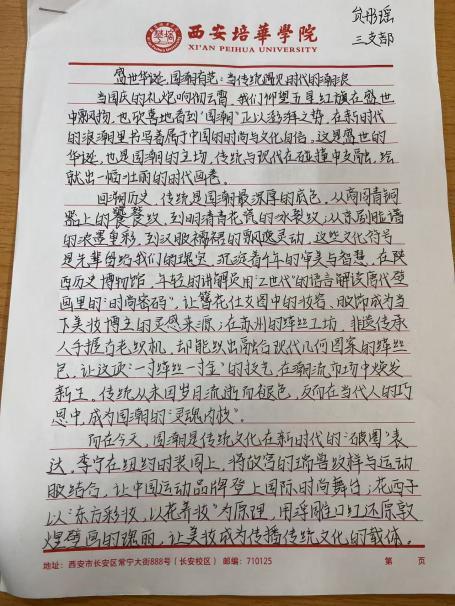 西安培華學院
XI'AN PEIHUA UNIVERSITY
彤瑶
三支部
盛世华诞,国潮有范:当传统遇见时代的潮浪
当国庆的礼炮响彻云霄,我们仰望五星红旗在盛世
中飘扬,也欣喜地看到"国潮"正以澎湃之势,在新时代
的浪潮里书写着属于中国的时尚与文化自信。这是盛世的
华诞,也是国潮的主场,传统与现代在碰撞中交融,绘
就出一幅壮丽的时代画卷。
回溯历史,传统是国潮最深厚的底色,从商周青铜
器上的饕餮纹,到明清青花瓷的冰裂纹;从京剧脸谱
的浓墨重彩,到汉服襦裙的飘逸灵动,这些文化符号
是先辈留给我们的瑰宝,沉淀着千年的审美与智慧,在陕
西历史博物馆,年轻的讲解员用"Z世代"的语言解读唐代壁
画里的"时尚密码",让簪花仕女图中的妆容、服饰成为当
下美妆博主的灵感来源;在苏州的缂丝工坊,非遗传承
人手握古老织机,却能织出融合现代几何图案的缂丝
包,让这项"一寸缂丝一寸金"的技艺,在潮流市场中焕发
新生。传统从未因岁月流逝而褪色,反而在当代人的巧
思中,成为国潮的"灵魂内核"。
而在今天,国潮是传统文化在新时代的"破圈"表
达,李宁在纽约时装周上,将故宫的瑞兽纹样与运动
服结合,让中国运动品牌登上国际时尚舞台;花西子
以"东方彩妆,以花养妆"为原理,用浮雕口红还原敦
煌壁画的瑰丽,让美妆成为传播传统文化的载体。
地址:西安市长安区常宁大街888号(长安校区) 邮编:710125 第 页